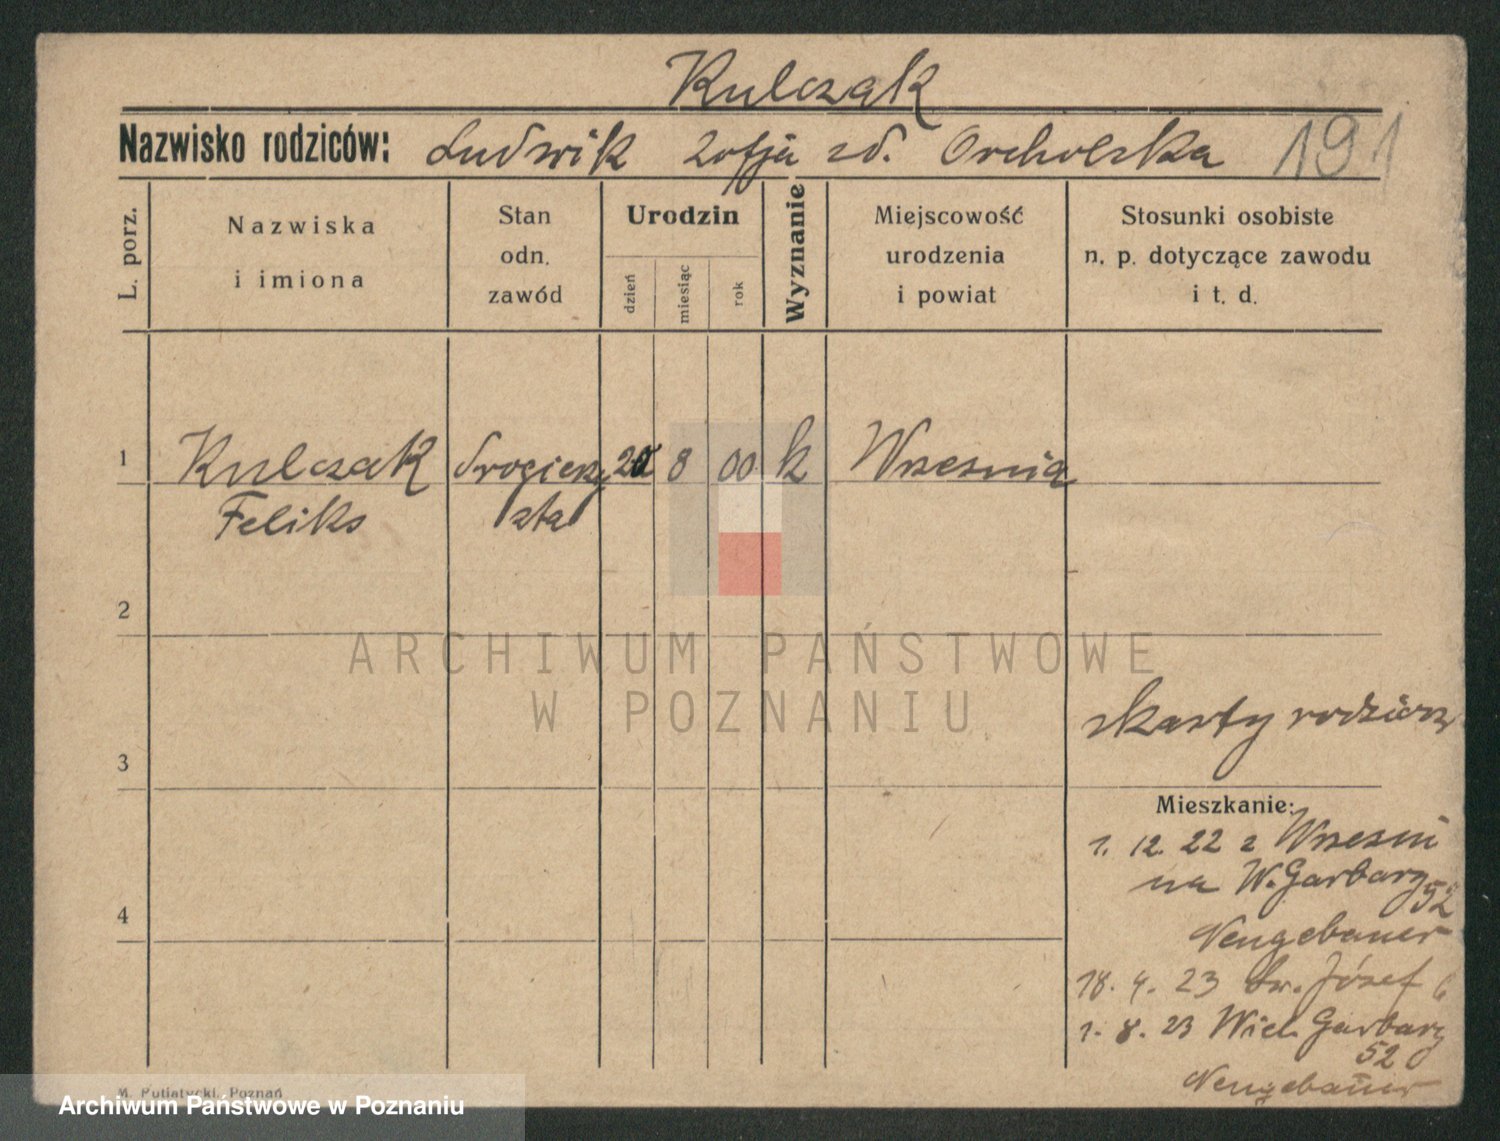 Kulczak
Nazwisko rodziców: Ludwik Zofja zd. Orcholska 191
L. porz.
Nazwiska
i imiona
Stan
odn.
zawód
Urodzin
dzień
miesiąc
rok
Wyznanie
Miejscowość
urodzenia
i powiat
Stosunki osobiste
n. p. dotyczące zawodu
i t. d.
1 Kulczak drogierzy 20 8 00 k Wrzesnia
Feliks sta
2
ARCHIWUM PAŃSTWOWE
W POZNANIU
z karty rodzicow
3
Mieszkanie:
1. 12. 22 z Wrzesni
na W. Garbary
52
4
Neugebauer
18. 4. 23 św. Józef 6
1. 8. 23 Wiel. Garbary
52
Neugebauer
M. Putiatycki, Poznań
Archiwum Państwowe w Poznaniu